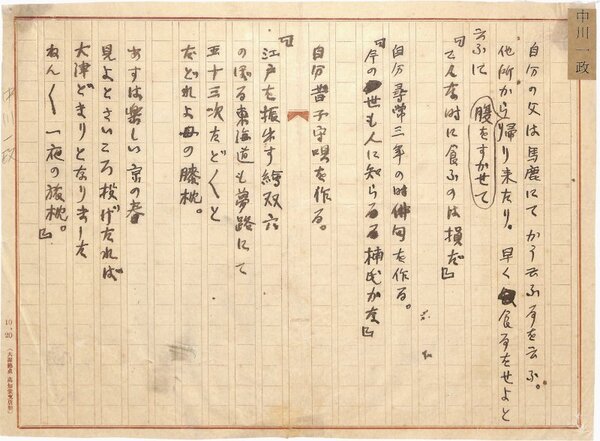 中川一政
自分の父は馬鹿にてかう云ふ事を云ふ。
他所から帰り来たり。早く食事をせよと
云ふに 腹をすかせて
「こんな時に食ふのは損だ」
自分尋常三年の時俳句を作る。
「今の世も人に知らるる楠氏かな」
自分昔子守唄を作る。
「江戸を振出す絵双六
のぼる東海道も夢路にて
五十三次たど〱と
たどれよ母の膝枕。
あすは楽しい京の春
見よとさいころ投げたれば
大津どまりとなりました
ねん〱一夜の旅枕。」
中川一政
10.20